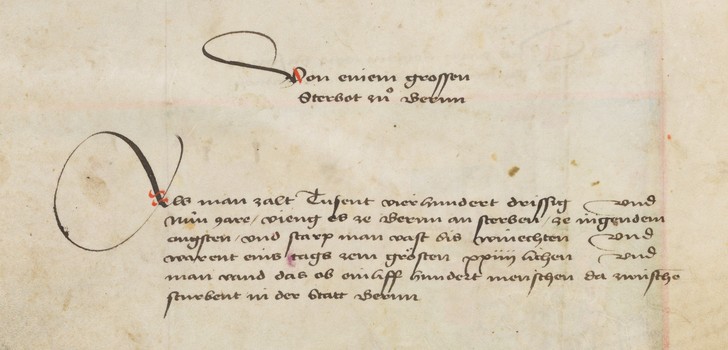 Von einem grossen
Sterbot zuͦ Bernn
Als man zalt Tusent vierhundert drissig vnd
Nün Jare / vieng es ze Bernn an sterben / ze ingendem
ougsten / vnd starp man vast bis winechten vnd
warent eins tags zem grösten xxiiii lichen vnd
man vand das ob einliff hundert menschen da zwüschē
sturbent in der Statt Bernn